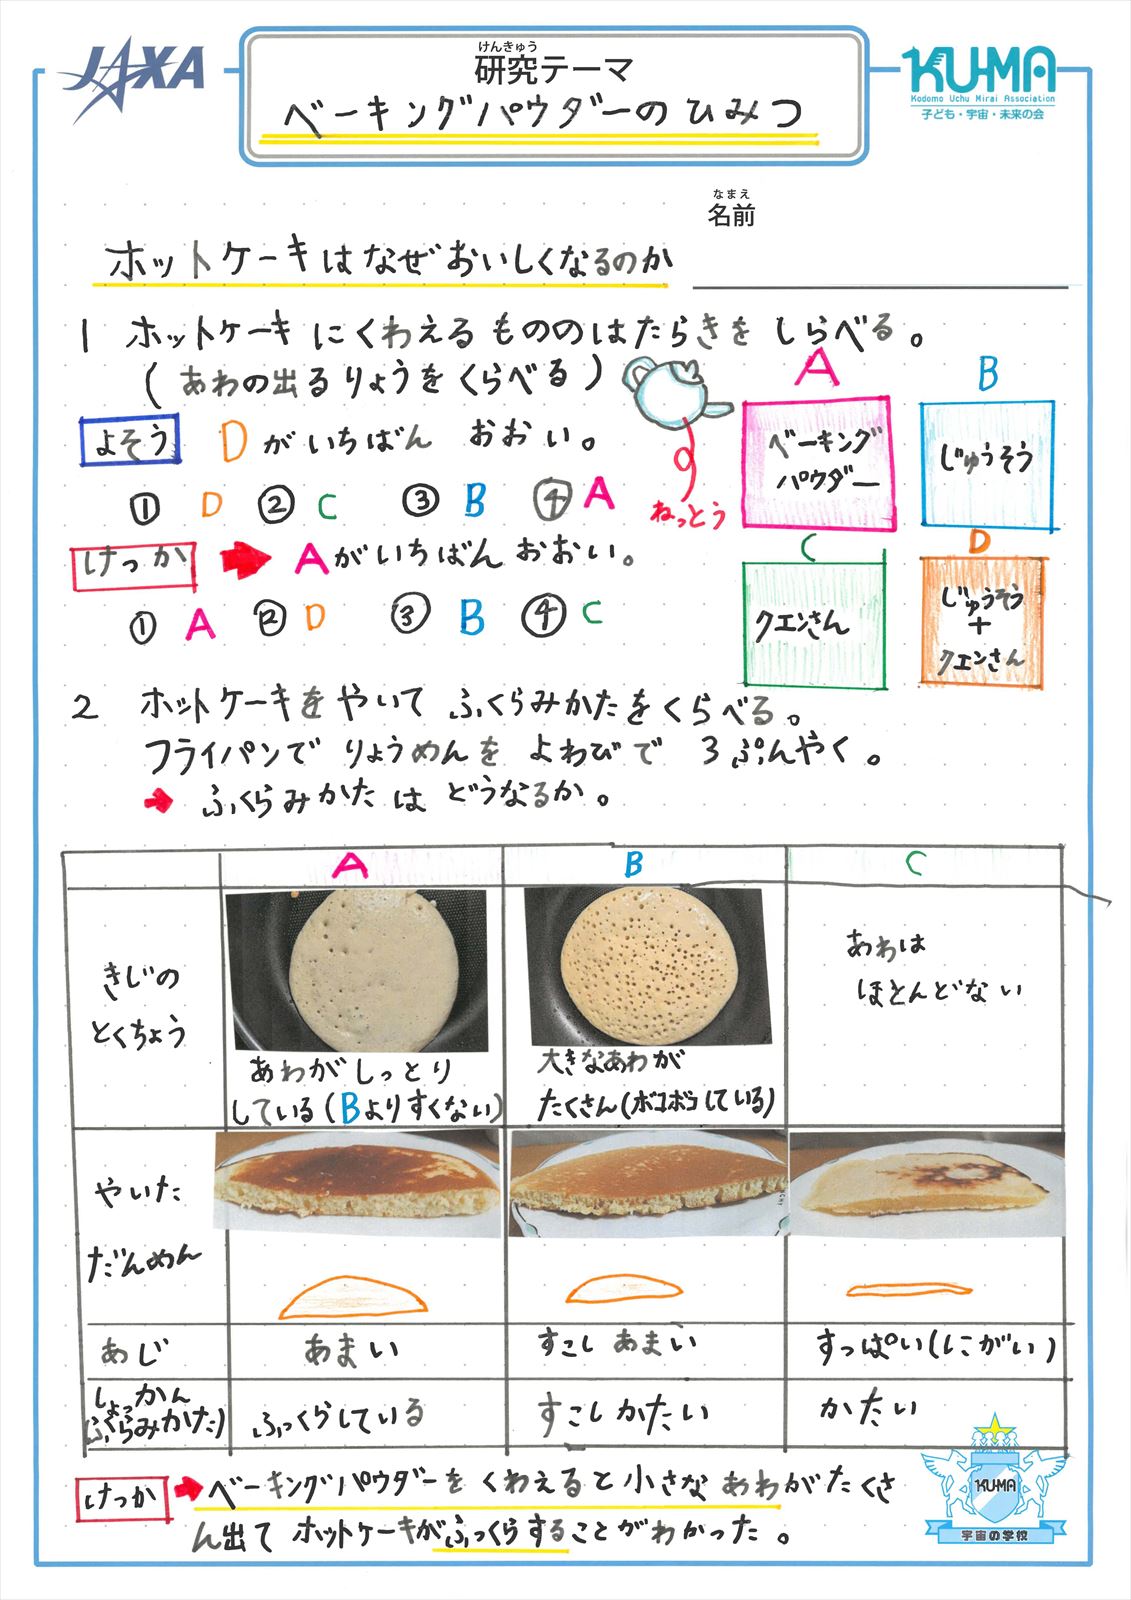 JAXA
けんきゅう
研究テーマ
ベーキングパウダーのひみつ
KU-MA
Kodomo Uchu Mirai Association
子ども・宇宙・未来の会
なまえ
名前
ホットケーキはなぜおいしくなるのか
1 ホットケーキにくわえるもののはたらきをしらべる。
(あわの出るりょうをくらべる)
よそう Dがいちばん おおい。
① D ② C ③ B ④ A
ねっとう
けっか Aがいちばん おおい。
① A ② D ③ B ④ C
A
ベーキング
パウダー
B
じゅうそう
C
クエンさん
D
じゅうそう
+
クエンさん
2 ホットケーキをやいて ふくらみかたをくらべる。
フライパンで りょうめんを よわびで 3ぷんやく。
ふくらみかたは どうなるか。
A B C
きじの
とくちょう
あわがしっとり
している(Bよりすくない)
大きなあわが
たくさん(ボコボコしている)
あわは
ほとんどない
やいた
だんめん
あじ あまい すこしあまい すっぱい(にがい)
しょっかん
(ふくらみかた)
ふっくらしている すこしかたい かたい
けっか ベーキングパウダーをくわえると小さなあわがたくさ
ん出てホットケーキがふっくらすることがわかった。
KU-MA
宇宙の学校